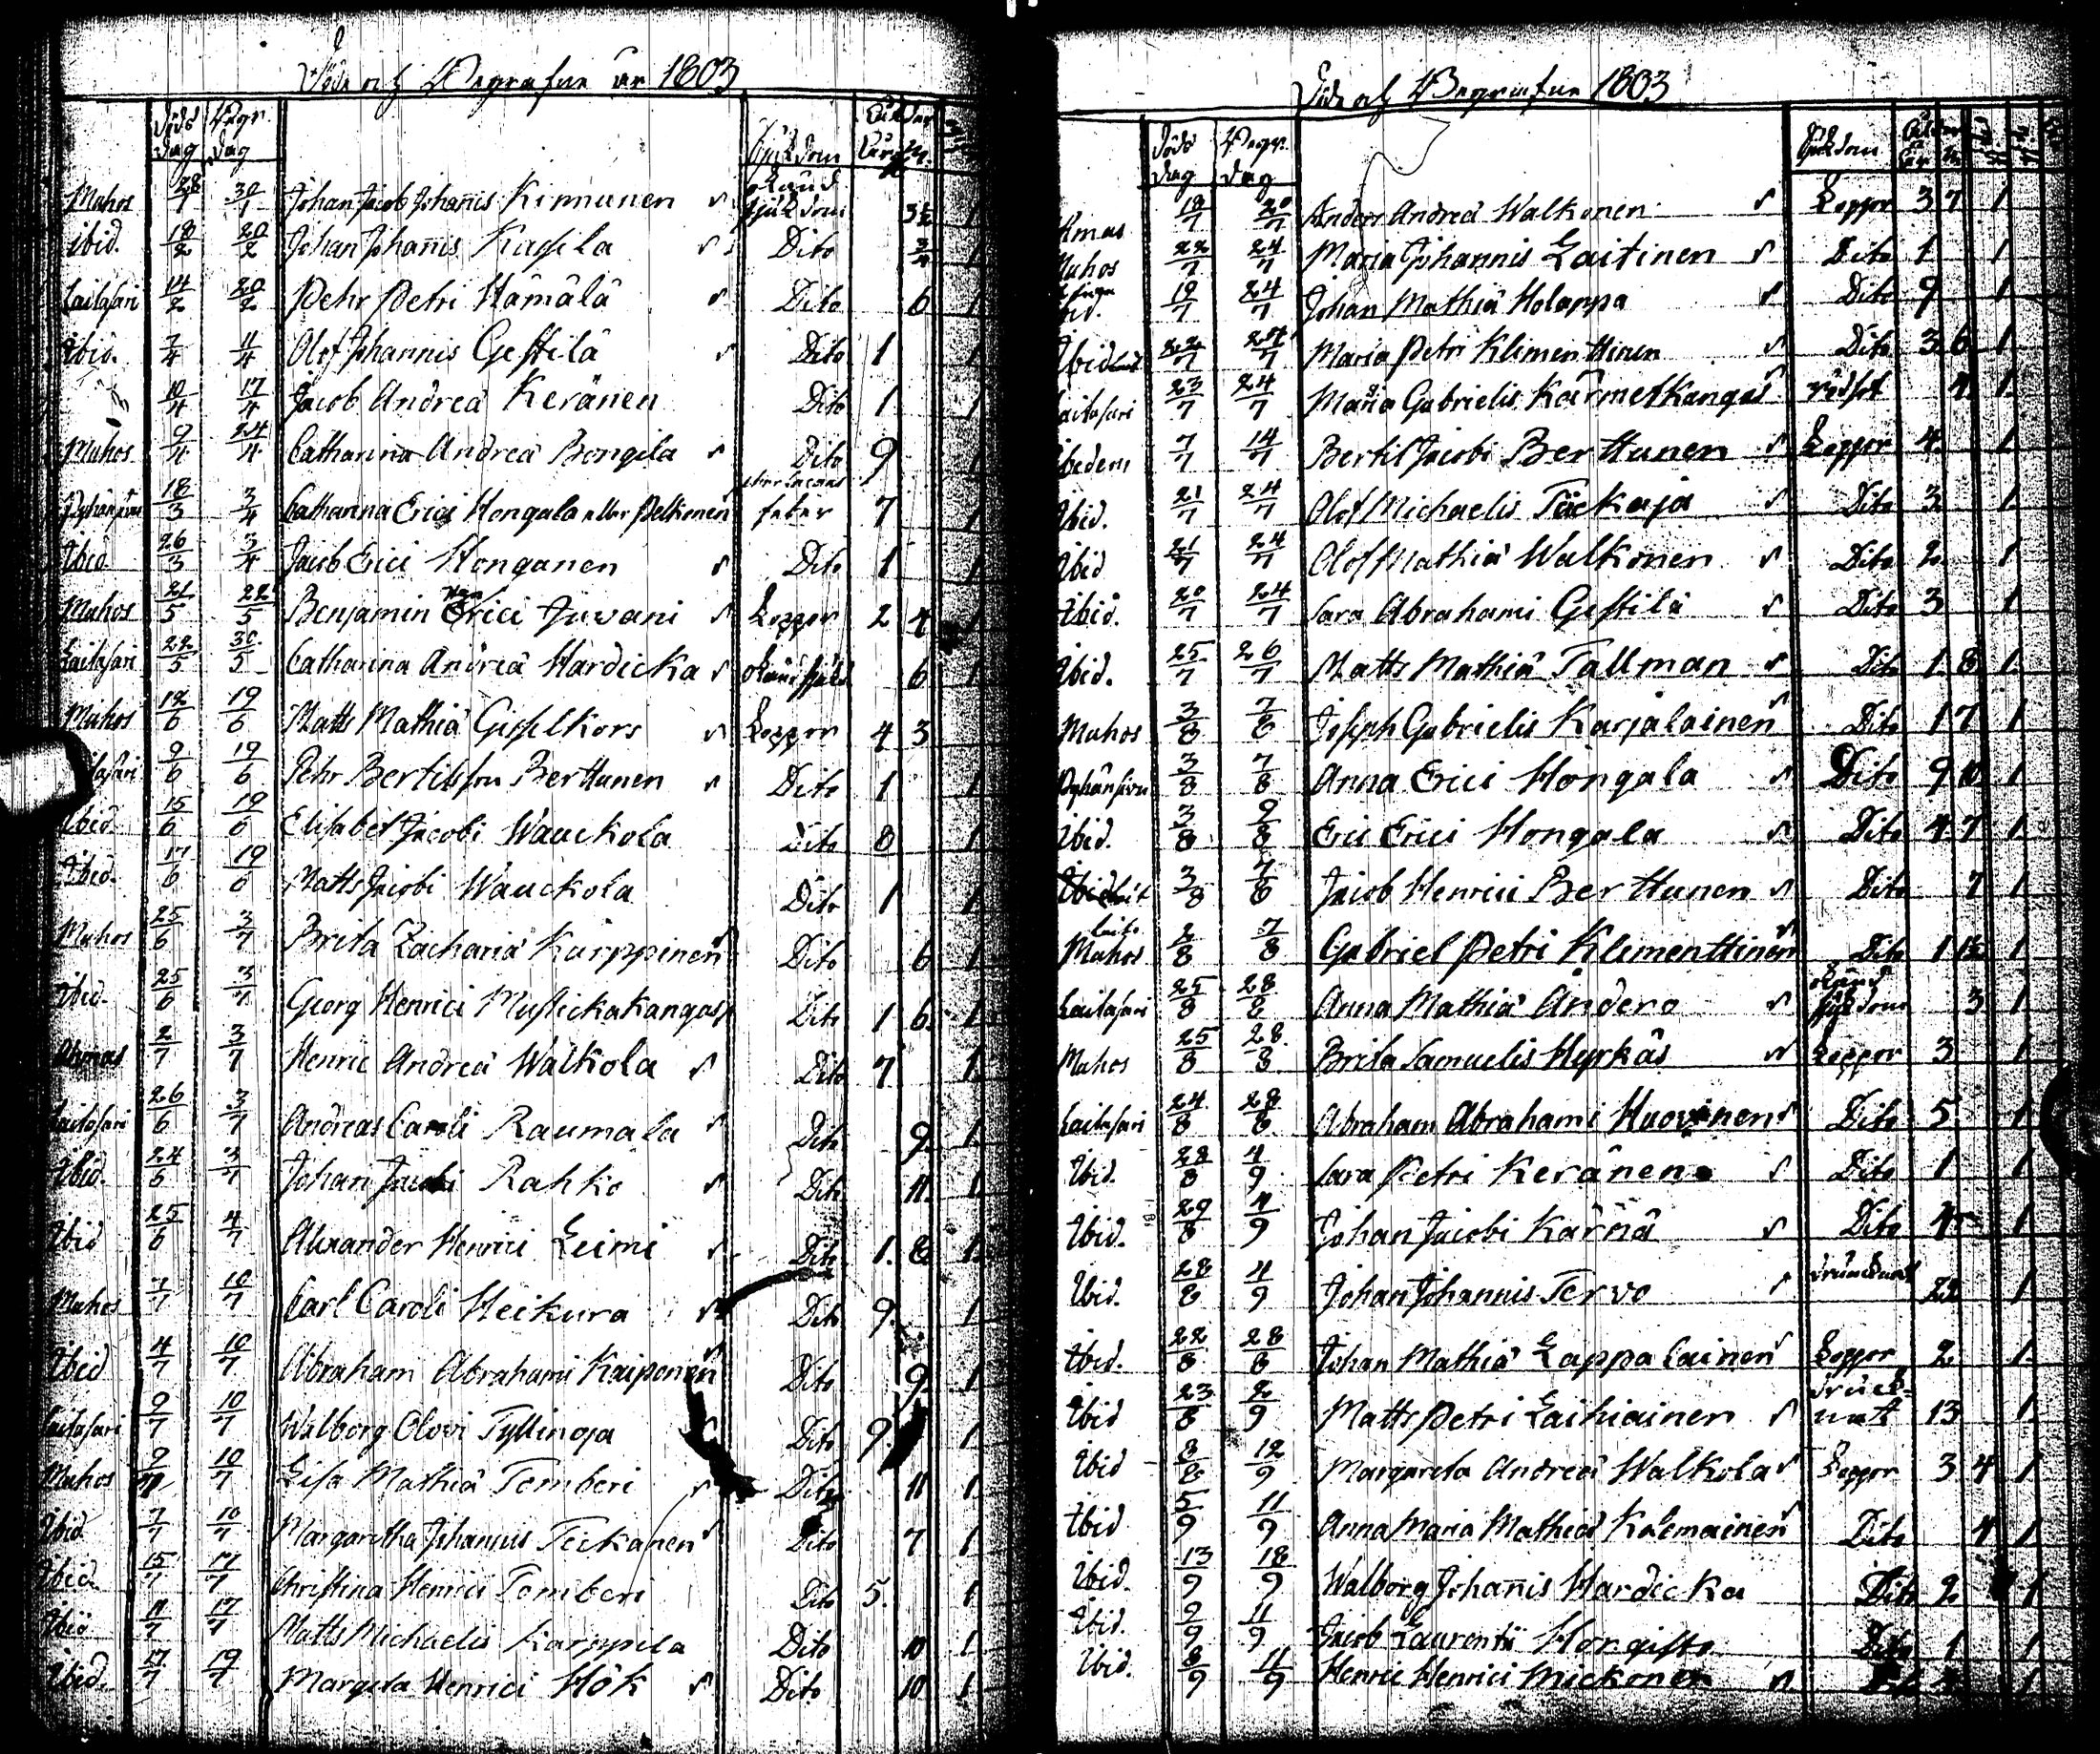 Döde och Begrafne år 1803
Döds dag Begr. dag Sjukdom Ålder År M.
Muhos 28/1 30/1 Johan Jacob Johannis Kinnunen okänd sjukdom 3½ 1
ibid. 18/2 20/2 Johan Johannis Kasila Dito 3/4 1
Laitasari 14/2 20/2 Pehr Petri Hämälä Dito 6 1
Ibid. 7/4 11/4 Olof Johannis Gestilä Dito 1 1
10/4 17/4 Jacob Andreä Keränen Dito 1 1
Muhos 9/4 24/4 Catharina Andreä Bongila Dito 9 1
Pyhänsivu 18/3 3/4 Catharina Erici Hongala eller Pelkonen feber 7 1
Ibid 26/3 3/4 Jacob Erici Honganen Dito 1 1
Muhos 21/5 22/5 Benjamin Erici Juvani Koppor 2 4 1
Laitasari 22/5 30/5 Catharina Andreä Hardicka okänd sjukd. 6 1
Muhos 12/6 19/6 Matts Mathiä Gisselkors Koppor 4 3
Laitasari 9/6 19/6 Pehr Bertilsson Berttunen Dito 1 1
Ibid. 15/6 19/6 Elisabet Jacobi Wauckola Dito 8 1
Ibid. 17/6 19/6 Matts Jacobi Wauckola Dito 1 1
Muhos 25/6 3/7 Brita Zachariä Karppinen Dito 6 1
Ibid. 25/6 3/7 Georg Henrici Mustickakangas Dito 1 6 1
Ahmas 2/7 3/7 Henric Andreä Walkola Dito 7 1
Laitasari 26/6 3/7 Andreas Caroli Raumala Dito 9 1
Ibid. 24/6 3/7 Johan Jacobi Rahko Dito 11 1
Ibid 25/6 4/7 Alexander Henrici Leimi Dito 1 8 1
Muhos 7/7 10/7 Carl Caroli Heikura Dito 9 1
Ibid 4/7 10/7 Abraham Abrahami Kaiponen Dito 9 1
Laitasari 9/7 10/7 Walborg Olovi Tyllinoja Dito 9 1
Muhos 9/7 10/7 Lisa Mathiä Tomberi Dito 11 1
Ibid 7/7 10/7 Margaretha Johannis Tickanen Dito 7 1
Ibid. 15/7 17/7 Christina Henrici Tomberi Dito 5 1
Ibid 11/7 17/7 Matts Michaelis Karppila Dito 10 1
Ibid. 17/7 19/7 Margeta Henrici Hök Dito 10 1
Döde och Begrafne 1803
Döds dag Begr. dag Sjukdom Ålder År M.
Ahmas 18/7 20/7 Anders Andreä Walkonen Koppor 3 7 1
Muhos 22/7 24/7 Maria Johannis Laitinen Dito 1 1
19/7 24/7 Johan Mathiä Holappa Dito 9 1
Ibid 22/7 24/7 Maria Petri Klimenttinen Dito 3 6 1
Laitasari 23/7 24/7 Maria Gabrielis Kärmetkangas rödsot 4 1
Ibedem 7/7 14/7 Bertil Jacobi Berttunen Koppor 4 1
Ibid. 21/7 24/7 Olof Michaelis Töckaja Dito 3 1
Ibid 21/7 24/7 Olof Mathiä Walkonen Dito 2 1
Ibid. 20/7 24/7 Sara Abrahami Gestilä Dito 3 1
Ibid. 25/7 26/7 Matts Mathiä Tallman Dito 1 8 1
Muhos 3/8 7/8 Joseph Gabrielis Karjalainen Dito 1 7 1
Pyhänsivu 3/8 7/8 Anna Erici Hongala Dito 9 10 1
Ibid. 3/8 9/8 Eric Erici Hongala Dito 4 7 1
Ibid 3/8 7/8 Jacob Henrici Berttunen Dito 7 1
Muhos 2/8 7/8 Gabriel Petri Klimenttinen Dito 1 1½ 1
Laitasari 25/8 28/8 Anna Mathiä Andero okänd sjukdom 3 1
Muhos 25/8 28/8 Brita Samuelis Hyrkäs Koppor 3 1
Laitasari 24/8 28/8 Abraham Abrahami Huovinen Dito 5 1
Ibid. 28/8 4/9 Sara Petri Keränen Dito 1 1
Ibid. 29/8 4/9 Johan Jacobi Kärnä Dito 4 1
Ibid. 28/8 4/9 Johan Johannis Tervo drunknat 22 1
Ibid. 22/8 28/8 Johan Mathiä Lappalainen Koppor 2 1
Ibid 23/8 2/9 Matts Petri Laihiainen drucknat 13 1
Ibid 8/8 12/9 Margareta Andreä Walkola Koppor 3 4 1
Ibid 5/9 11/9 Anna Maria Mathiä Kalemainen Dito 4 1
Ibid. 13/9 18/9 Walborg Johannis Hardicka Dito 2 1
Ibid. 9/9 11/9 Jacob Laurentii Horgisto Dito 1 1
Ibid. 8/9 11/9 Henric Henrici Mickonen 1